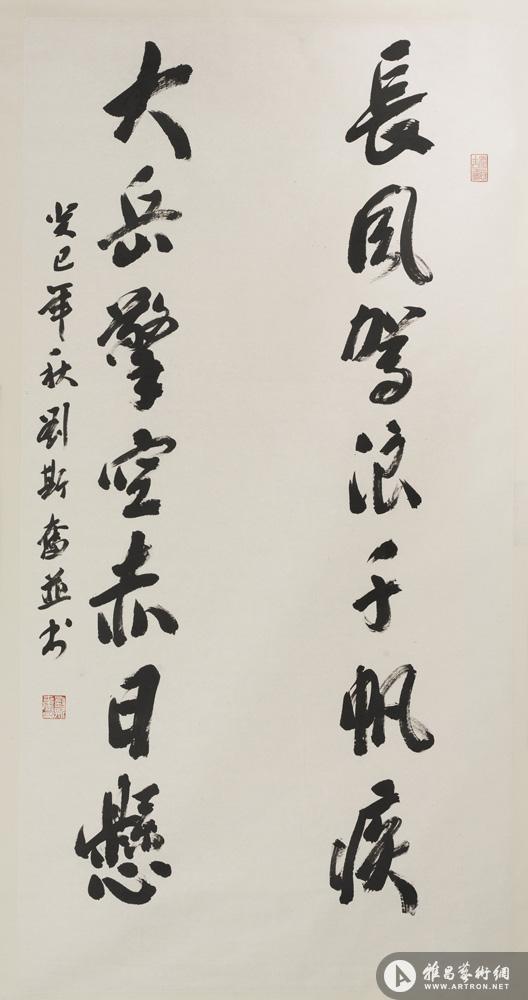 長風駕浪千帆疾
大岳擎空赤日懸
癸巳年秋劉斯奮並书
雅昌藝術網
WWW.ARTRON.NET